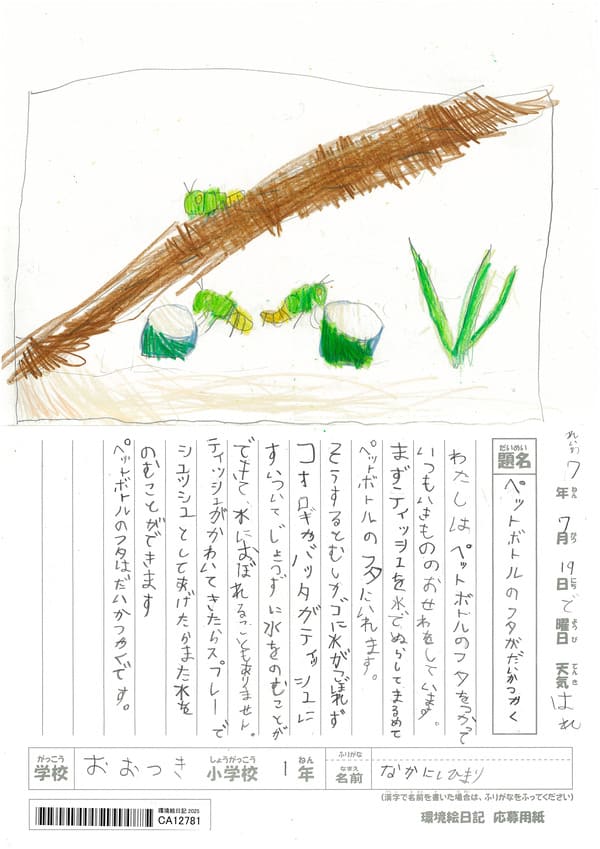 れいわ7年ねん7月がつ19日にちど曜日ようび 天気てんき はれ
題名だいめい ペットボトルのフタがだいかつやく
わたしはペットボトルのフタをつかって
いつもいきもののおせわをしています。
まずティッシュを水でぬらしてまるめて
ペットボトルのフタにいれます。
そうするとむしかゴに水がこぼれず
コオロギやバッタがティッシュに
すいついてじょうずに水をのむことが
できて、水におぼれることもありません。
ティッシュがかわいてきたらスプレーで
シュッシュとしてあげたらまた水を
のむことができます
ペットボトルのフタはだいかつやくです。
学校がっこう おおつき 小学校しょうがっこう 1年ねん ふりがな 名前なまえ なかにしひまり
(漢字で名前を書いた場合は、ふりがなをふってください)
環境絵日記 応募用紙
環境絵日記 2025
CA12781